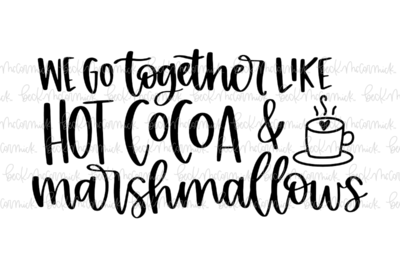 WE GO together LIKE
HOT COCOA &
marshmallows